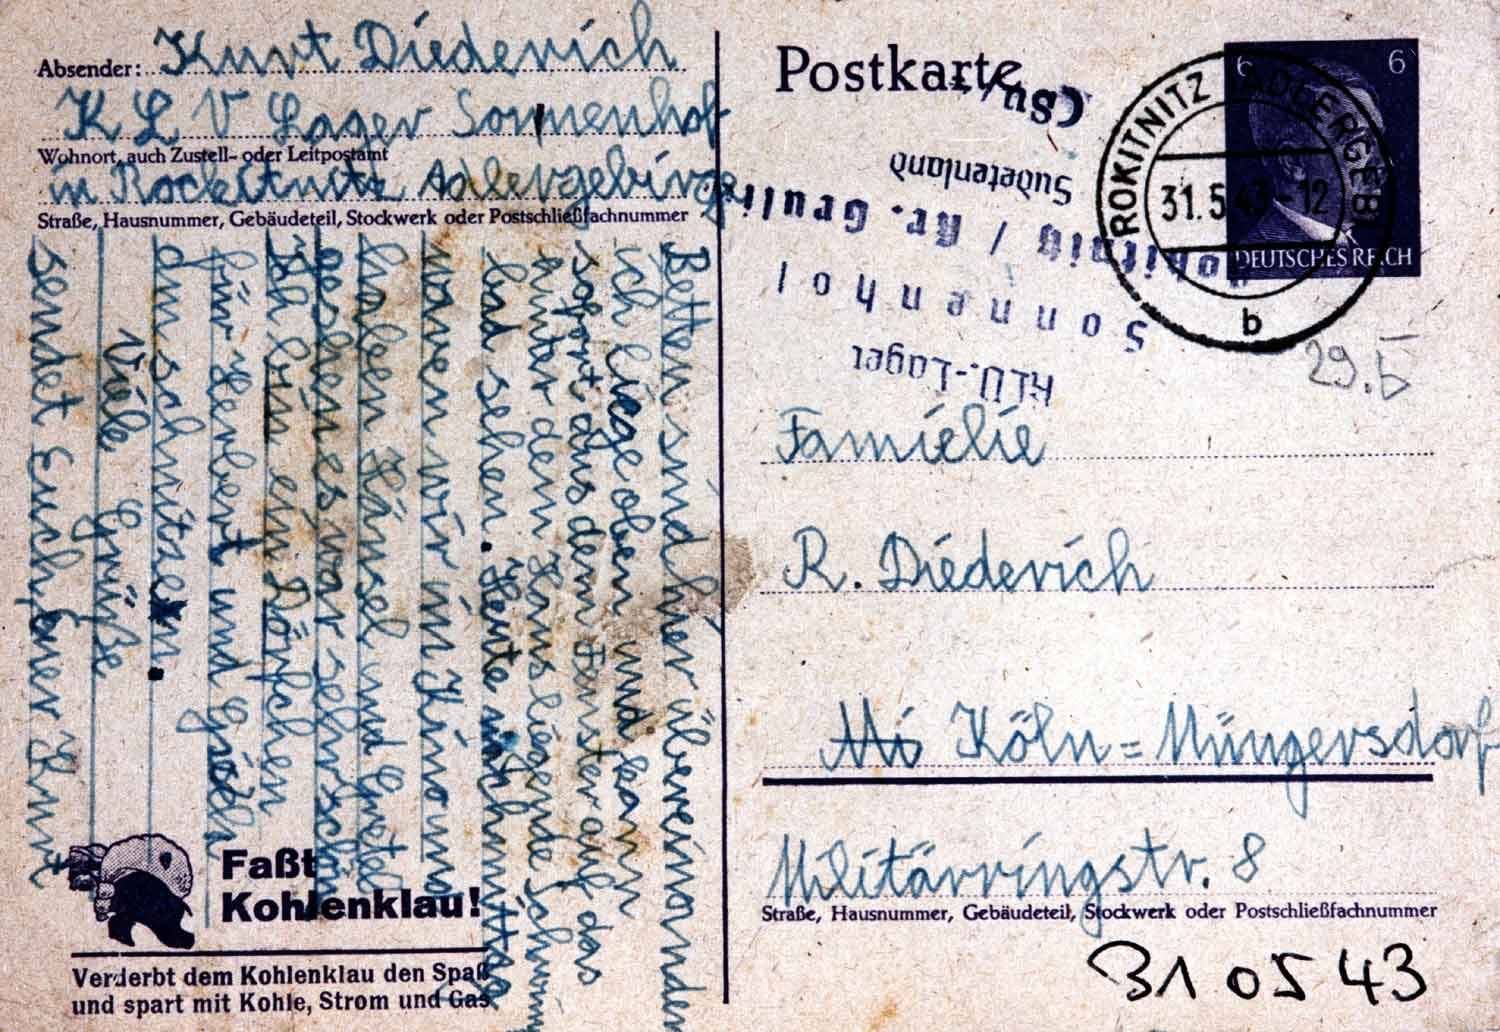 Absender: Kurt Diederich
K L V Lager Sonnenhof
Wohnort, auch Zustell- oder Leitpostamt
in Rockitnitz Adlergebirge
Straße, Hausnummer, Gebäudeteil, Stockwerk oder Postschließfachnummer
Betten sind hier übereinander
ich liege oben und kann
sofort aus dem Fenster auf das
hinter dem Haus liegende
bad sehen. Heute nachmittag
waren wir im Kino und
haben Hänsel und Gretel
gesehen es war sehr schön
Ich bin ein Dörfchen
für Herbert und
am schnitzen.
Viele Grüße
sendet Euch Euer Kurt
Faßt
Kohlenklau!
Verderbt dem Kohlenklau den Spaß
und spart mit Kohle, Strom und Gas
Postkarte
KLV.-Lager
Sonnenhof
Rokitnitz / Kr. Grulich
Sudetenland
ROKITNITZ (ADLERGEB)
31.5.43-12
b
6 6
DEUTSCHES REICH
29.5
Famielie
R. Diederich
Köln=Müngersdorf
Militärringstr. 8
Straße, Hausnummer, Gebäudeteil, Stockwerk oder Postschließfachnummer
31 05 43